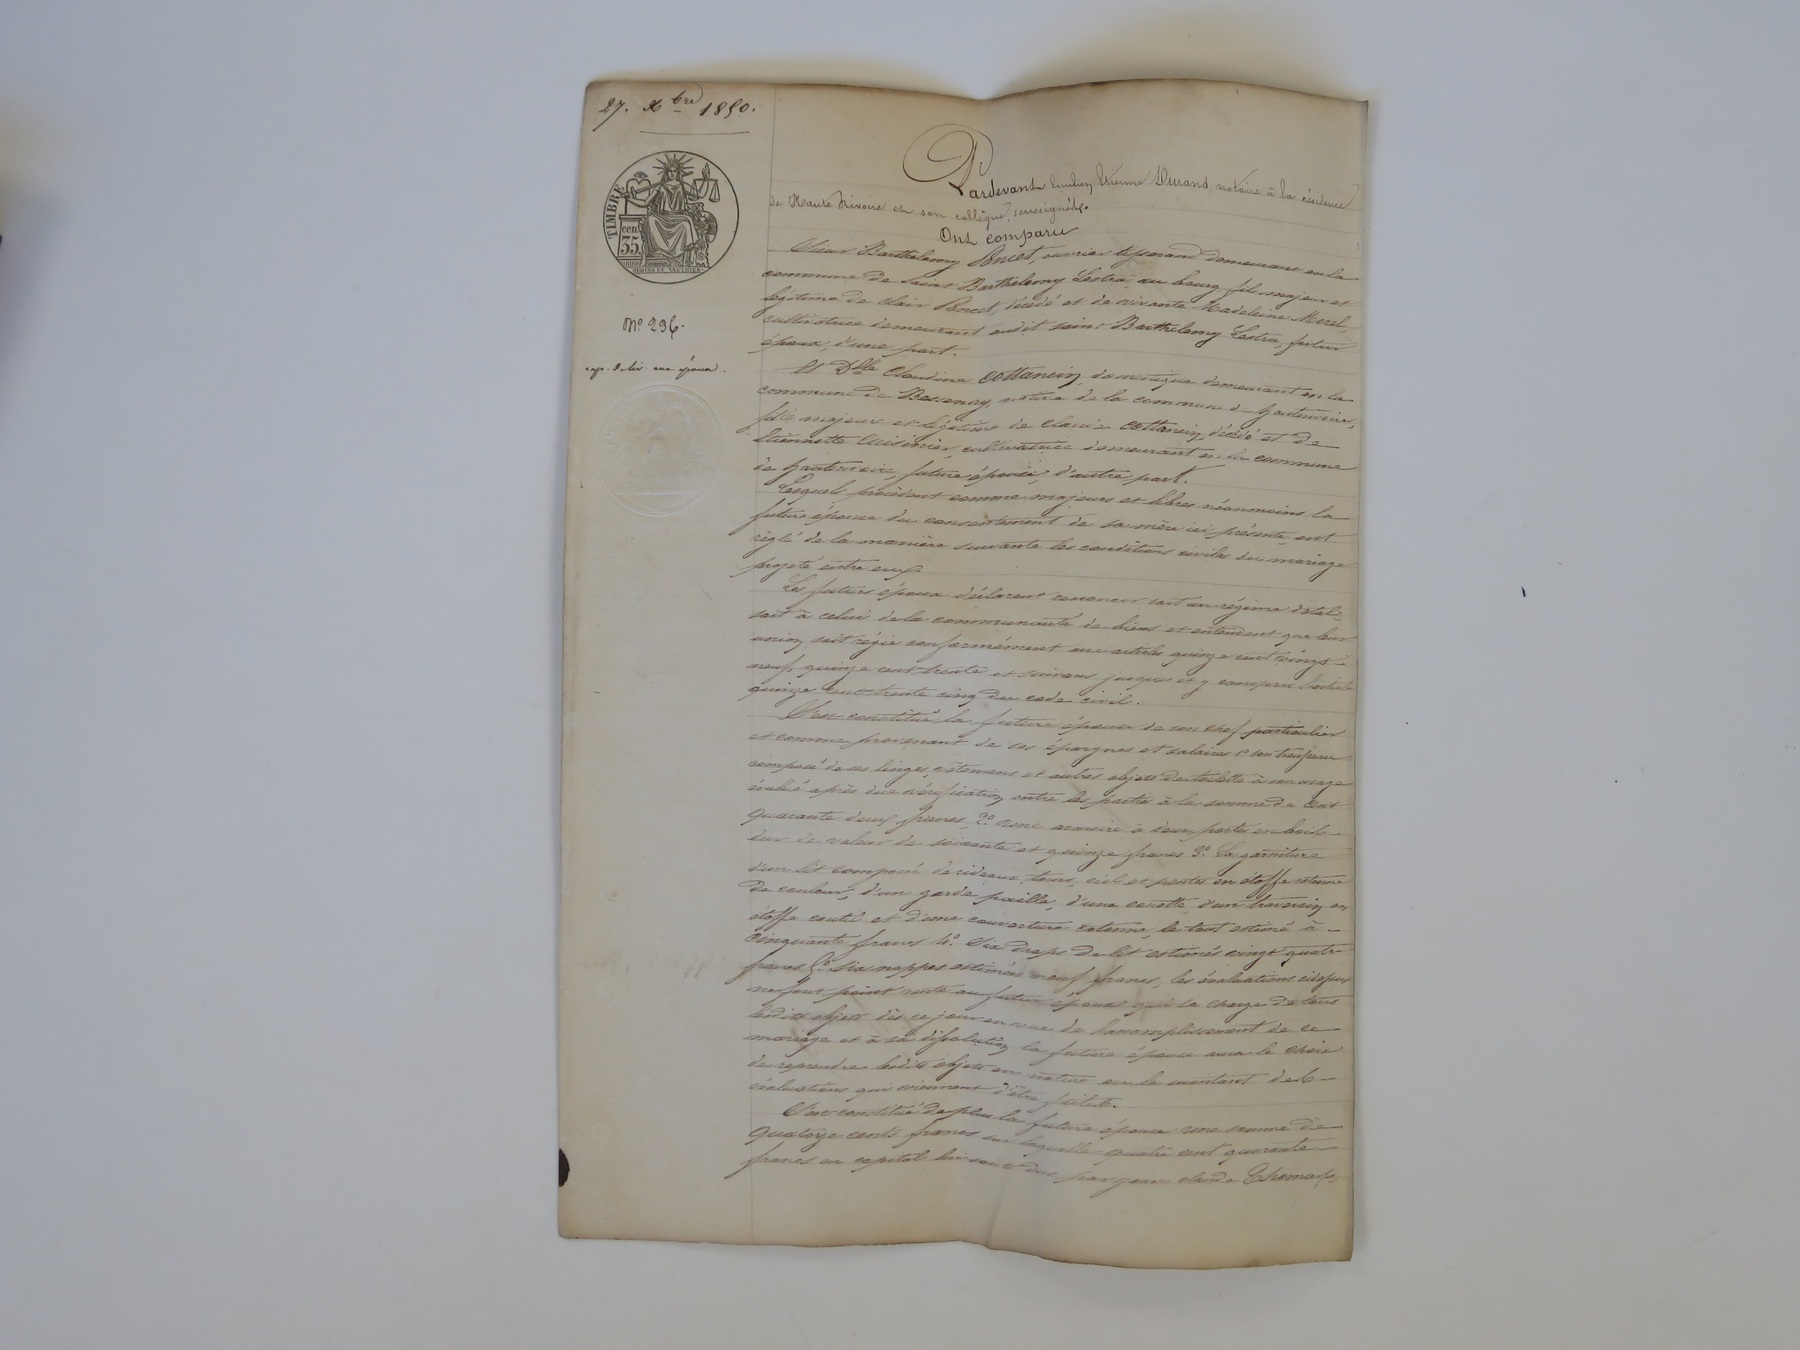 27. Xbre 1850.
TIMBRE
cen.
35.
N° 296.
exp. d. liv. aux époux.
Pardevant Emilien Etienne Durand, notaire à la résidence
de Haute Rivoire et son collègue, soussignés.
Ont comparu
Sieur Barthelemy Poncet, ouvrier tisserand demeurant en la
commune de Saint Barthelemy Lestra, au bourg, fils majeur et
légitime de Clair Poncet, décédé et de vivante Madeleine Morel,
cultivatrice demeurant audit saint Barthelemy Lestra, futur
époux, d'une part.
Et Dlle Claudine Cottancin, domestique demeurant en la
commune de Bessenay, native de la commune de hauterivoire,
fille majeure et légitime de Claude Cottancin, décédé et de
Etiennette Cuisinier, cultivatrice demeurant en la commune
de hauterivoire, future épouse, d'autre part.
Lesquels procédant comme majeurs et libres néanmoins la
future épouse du consentement de sa mère ici présente, ont
réglé de la manière suivante les conditions civiles du mariage
projeté entre eux.
Les futurs époux déclarent renoncer soit au régime dotal,
soit à celui de la communauté de biens et entendent que leur
union soit régie conformément aux articles quinze cent vingt
neuf, quinze cent trente et suivans jusques et y compris l'article
quinze cent trente cinq du code civil.
S'est constitué la future épouse de son chef particulier
et comme provenant de ses épargnes et salaires 1° son trousseau
composé de ses linges, vêtemens et autres objets de toilette à son usage
évalué après due vérification entre les parties à la somme de cent
quarante deux francs, 2° une armoire à deux portes en bois
dur de valeur de soixante et quinze francs 3° La garniture
d'un lit composé de rideaux, tours, ciel et pentes en étoffe cotonne
de couleur, d'un garde paille, d'une couette, d'un traversin en
étoffe coutil et d'une couverture cotonne, le tout estimé à
cinquante francs 4° Six draps de lit estimés vingt quatre
francs 5° Six nappes estimées neuf francs, les évaluations ci dessus
ne font point vente au futur époux qui se charge de tous
lesdits objets dès ce jour en vue de l'accomplissement de ce
mariage et à sa dissolution la future épouse aura le choix
de reprendre lesdits objets en nature ou le montant des
évaluations qui viennent d'être faites.
S'est constitué de plus la future épouse une somme de
quatorze cents francs sur laquelle quatre cent quarante
francs en capital lui sont dus par Jean Claude